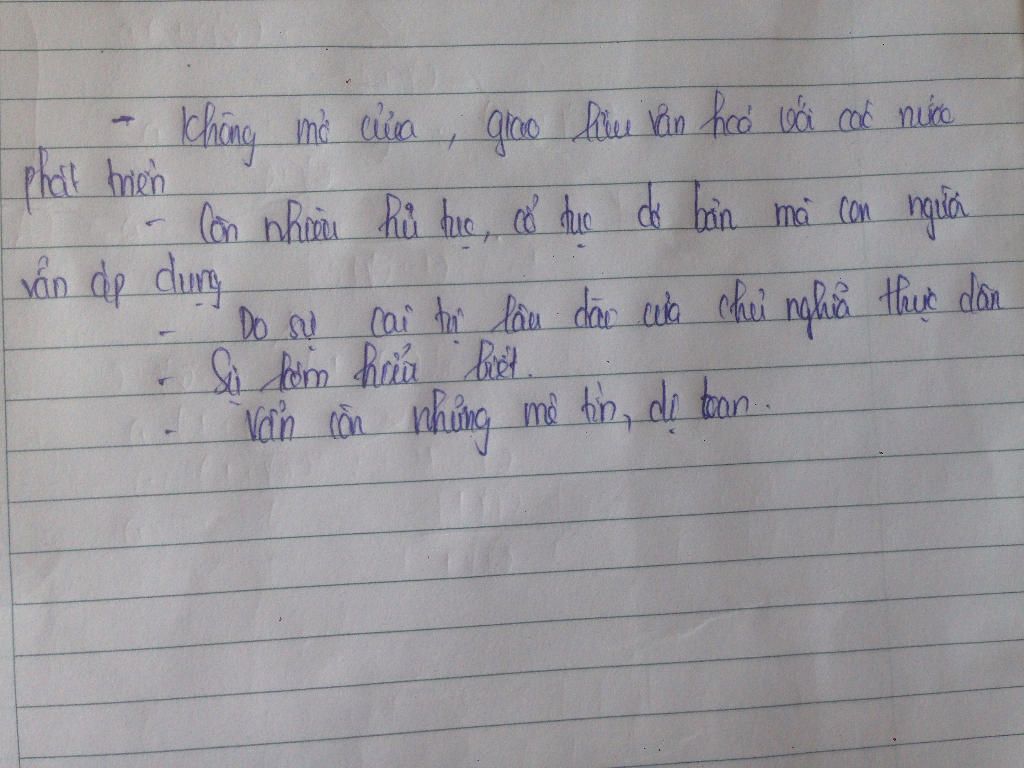 - Không mở cửa, giao lưu văn hoá với các nước
phát triển
- Còn nhiều hủ tục, cổ tục dã bản mà con người
vẫn áp dụng
- Do sự cai trị lâu dài của chủ nghĩa thực dân
- Sự kém hiểu biết.
- Vẫn còn những mê tín, dị đoan..